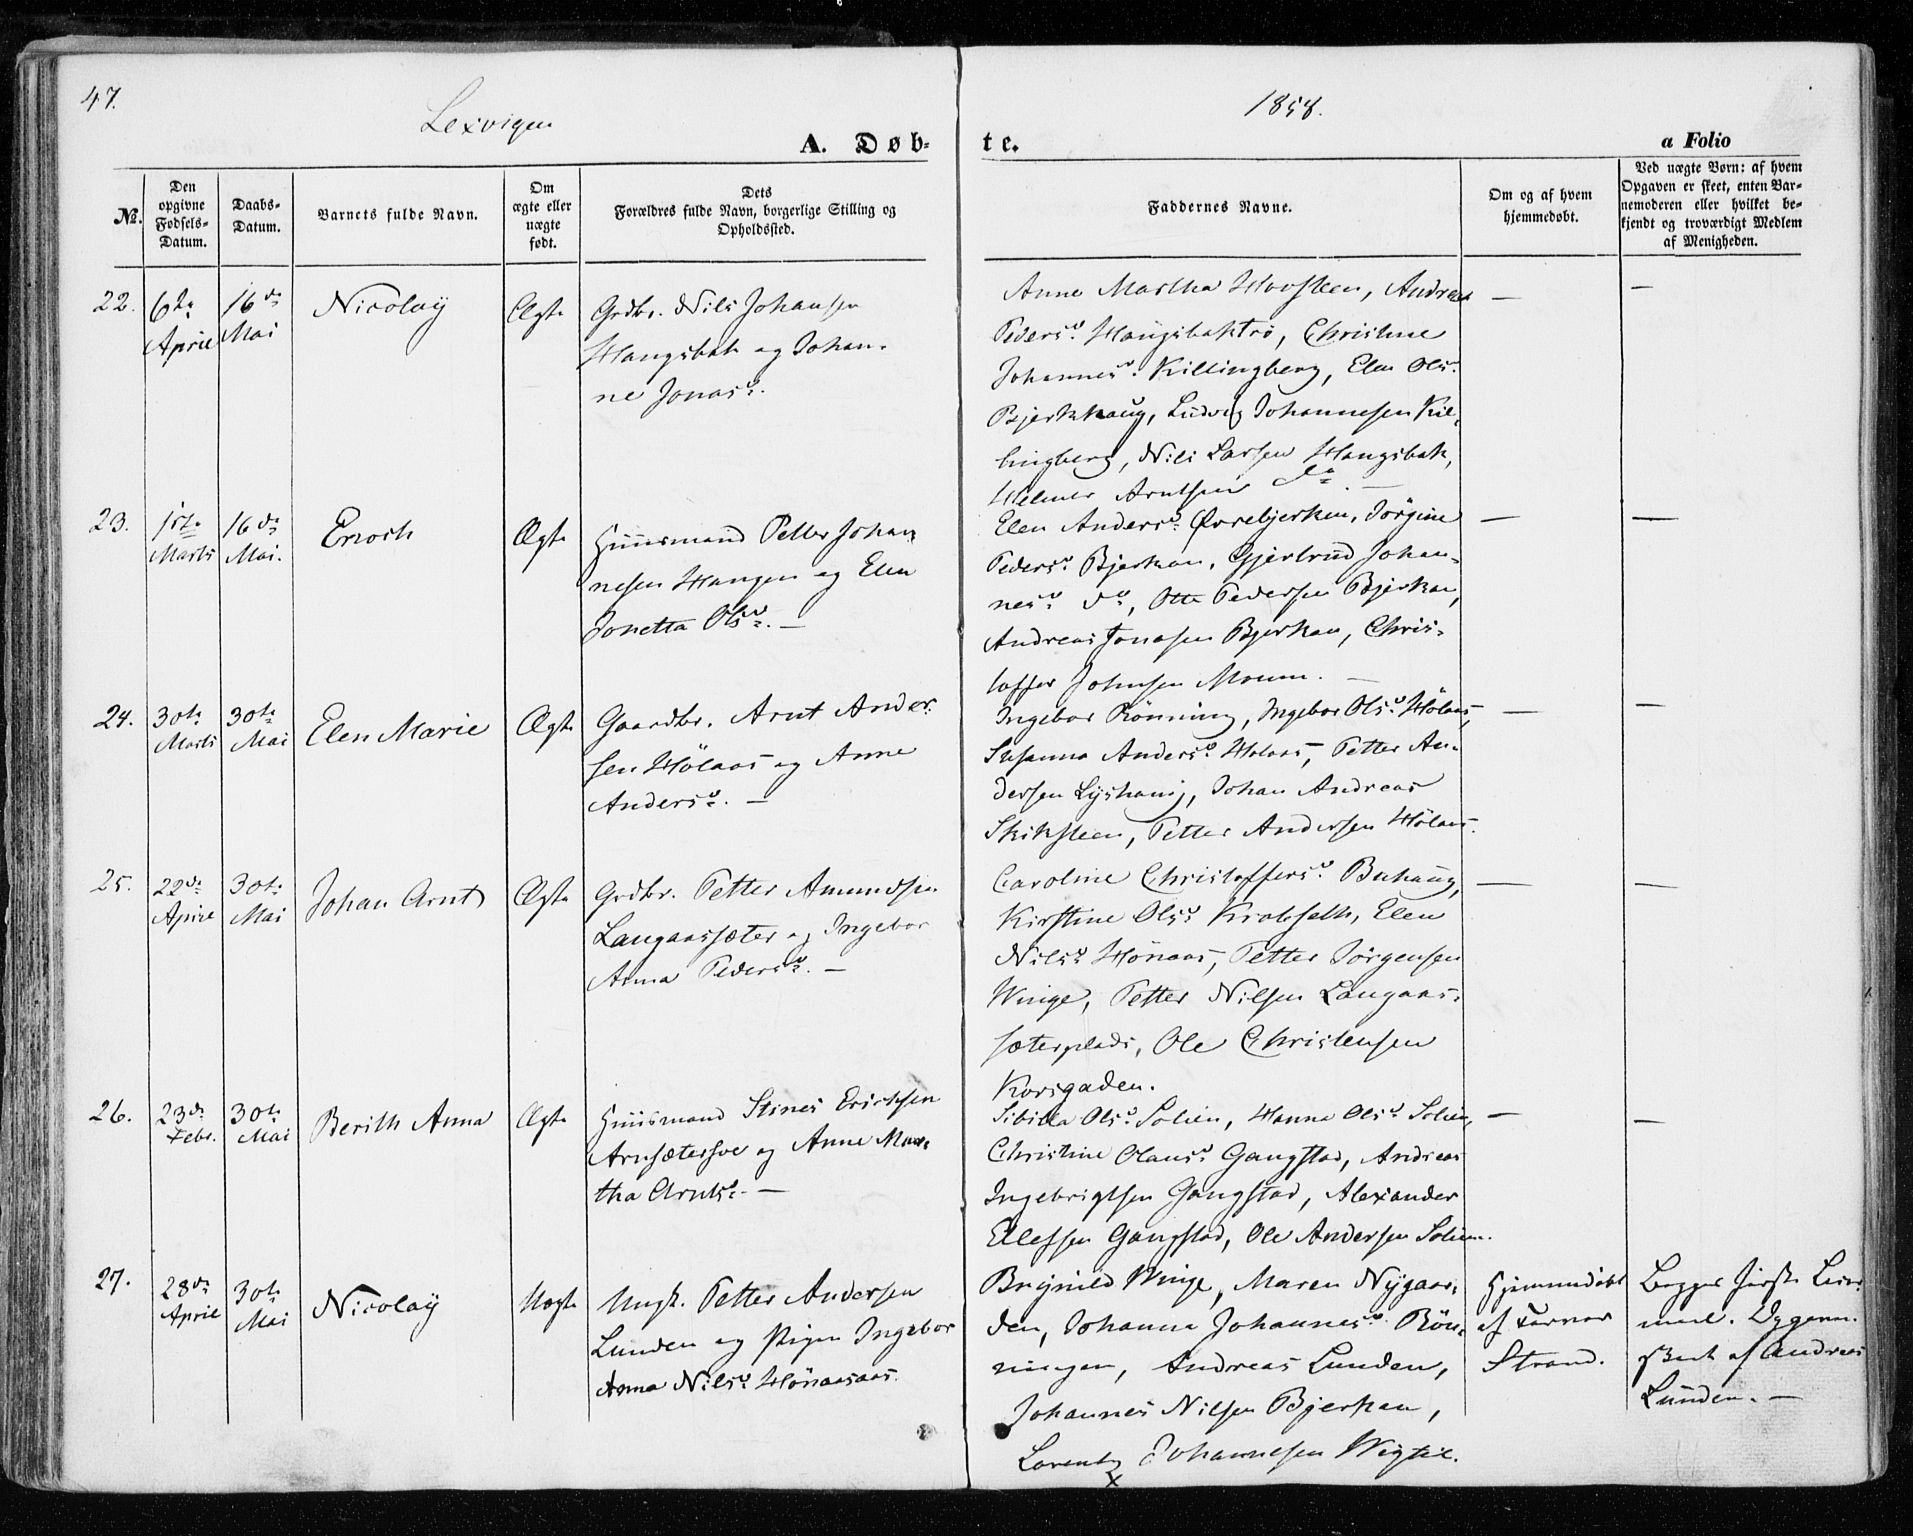 47.
Lexvigen
1858.
A. Døb-
te.
a Folio
No.
Den opgivne Fødsels-Datum.
Daabs-Datum.
Barnets fulde Navn.
Om ægte eller uægte født.
Dets Forældres fulde Navn, borgerlige Stilling og Opholdssted.
Faddernes Navne.
Om og af hvem hjemmedøbt.
Ved uægte Børn: af hvem Opgaven er skeet, enten Barnemoderen eller hvilket bekjendt og troværdigt Medlem af Menigheden.
22.
6te April
16de Mai
Nicolaÿ
Ægte
Grdbr. Nils Johansen
Haugsbak og Johan-
ne Jonasd.
Anne Martha Hovsteen, Andreas
Pedersd. Haugsbaktrø, Christine
Johannesd. Killingberg, Elen Olsd.
Bjerkhaug, Ludvig Johannesen Kil-
lingberg, Nils Larsen Haugsbak,
Helmer Arntsen do. —
—
—
23.
1ste Marts
16de Mai.
Enoch
Ægte
Huusmand Petter Johan-
nesen Haugen og Elen
Jonetta Olsd. —
Elen Andersd. Øvrebjerken, Jörgine
Pedersd. Bjerkan, Gjertrud Johan-
nesd. do, Otte Pedersen Bjerkan,
Andreas Jonasen Bjerkan, Chris-
toffer Johnsen Moum. —
—
—
24.
30te Marts
30te Mai
Elen Marie
Ægte
Gaardbr. Arnt Ander-
sen Hölaas og Anne
Andersd. —
Ingebor Rönning, Ingebor Olsd. Hölaas,
Susanna Andersd. Hölaas, Petter An-
dersen Lÿshaug, Johan Andreas
Skiksteen, Petter Andersen Hölaas.
—
—
25.
22de April
30te Mai
Johan Arnt
Ægte
Grdbr. Petter Amundsen
Langaassæter og Ingebor
Anna Pedersd. —
Caroline Christoffersd. Buhaug,
Kirstine Olsd. Krabseth, Elen
Nilsd. Hönaas, Petter Jörgensen
Winge, Petter Nilsen Langaas-
sæterplads, Ole Christensen
Korsgaden.
—
—
26.
23de Febr.
30te Mai
Berith Anna
Ægte
Huusmand Stines Ericksen
Arnsætersve og Anne Mar-
tha Arntsd. —
Sibilla Olsd. Solien, Hanna Olsd. Solien,
Christine Olausd. Gangstad, Andreas
Ingebrigtsen Gangstad, Alexander
Ellefsen Gangstad, Ole Andersen Solien.
—
—
27.
28de April
30te Mai
Nicolaÿ
Uægte
Ungk. Petter Andersen
Lunden og Pigen Ingebor
Anna Nilsd. Hönaasaas.
Brynild Winge, Maren Nÿgaar-
den, Johanna Johannesd. Rön-
ningen, Andreas Lunden,
Johannes Nilsen Bjerkan,
Lorents Johannesen Wigtil.
Hjemmedøbt
af
Strand.
Begges første Leier-
maal. Opgaven
skeet af Andreas
Lunden. —
x